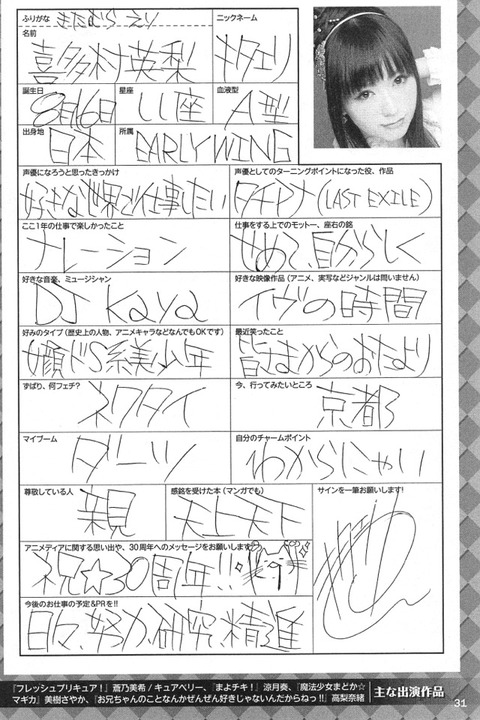 ふりがな きたむら えり
ニックネーム
名前
喜多村英梨
キタエリ
誕生日
8月16日
星座
しし座
血液型
A型
出身地
日本
所属
EARLY WING
声優になろうと思ったきっかけ
好きな世界で仕事したい
声優としてのターニングポイントになった役、作品
タチアナ(LAST EXILE)
ここ1年の仕事で楽しかったこと
ナレーション
仕事をする上でのモットー、座右の銘
せめて、自分らしく
好きな音楽、ミュージシャン
DJ Kaya
好きな映像作品(アニメ、実写などジャンルは問いません)
イヴの時間
好みのタイプ(歴史上の人物、アニメキャラなどなんでもOKです)
女顔ドS系美少年
最近笑ったこと
皆はからのおたより
ずばり、何フェチ?
ネクタイ
今、行ってみたいところ
京都
マイブーム
ダーツ
自分のチャームポイント
わからにゃい
尊敬している人
親
感銘を受けた本(マンガでも)
天上天下
サインを一筆お願いします!
アニメディアに関する思い出や、30周年へのメッセージをお願いします
祝☆30周年!!
今後のお仕事の予定&PRを!!
日々、努力、研究、精進
『フレッシュプリキュア!』蒼乃美希/キュアベリー、『まよチキ!』涼月奏、『魔法少女まどか☆
マギカ』美樹さやか、『お兄ちゃんのことなんかぜんぜん好きじゃないんだからねっ!!』高梨奈緒
主な出演作品
31